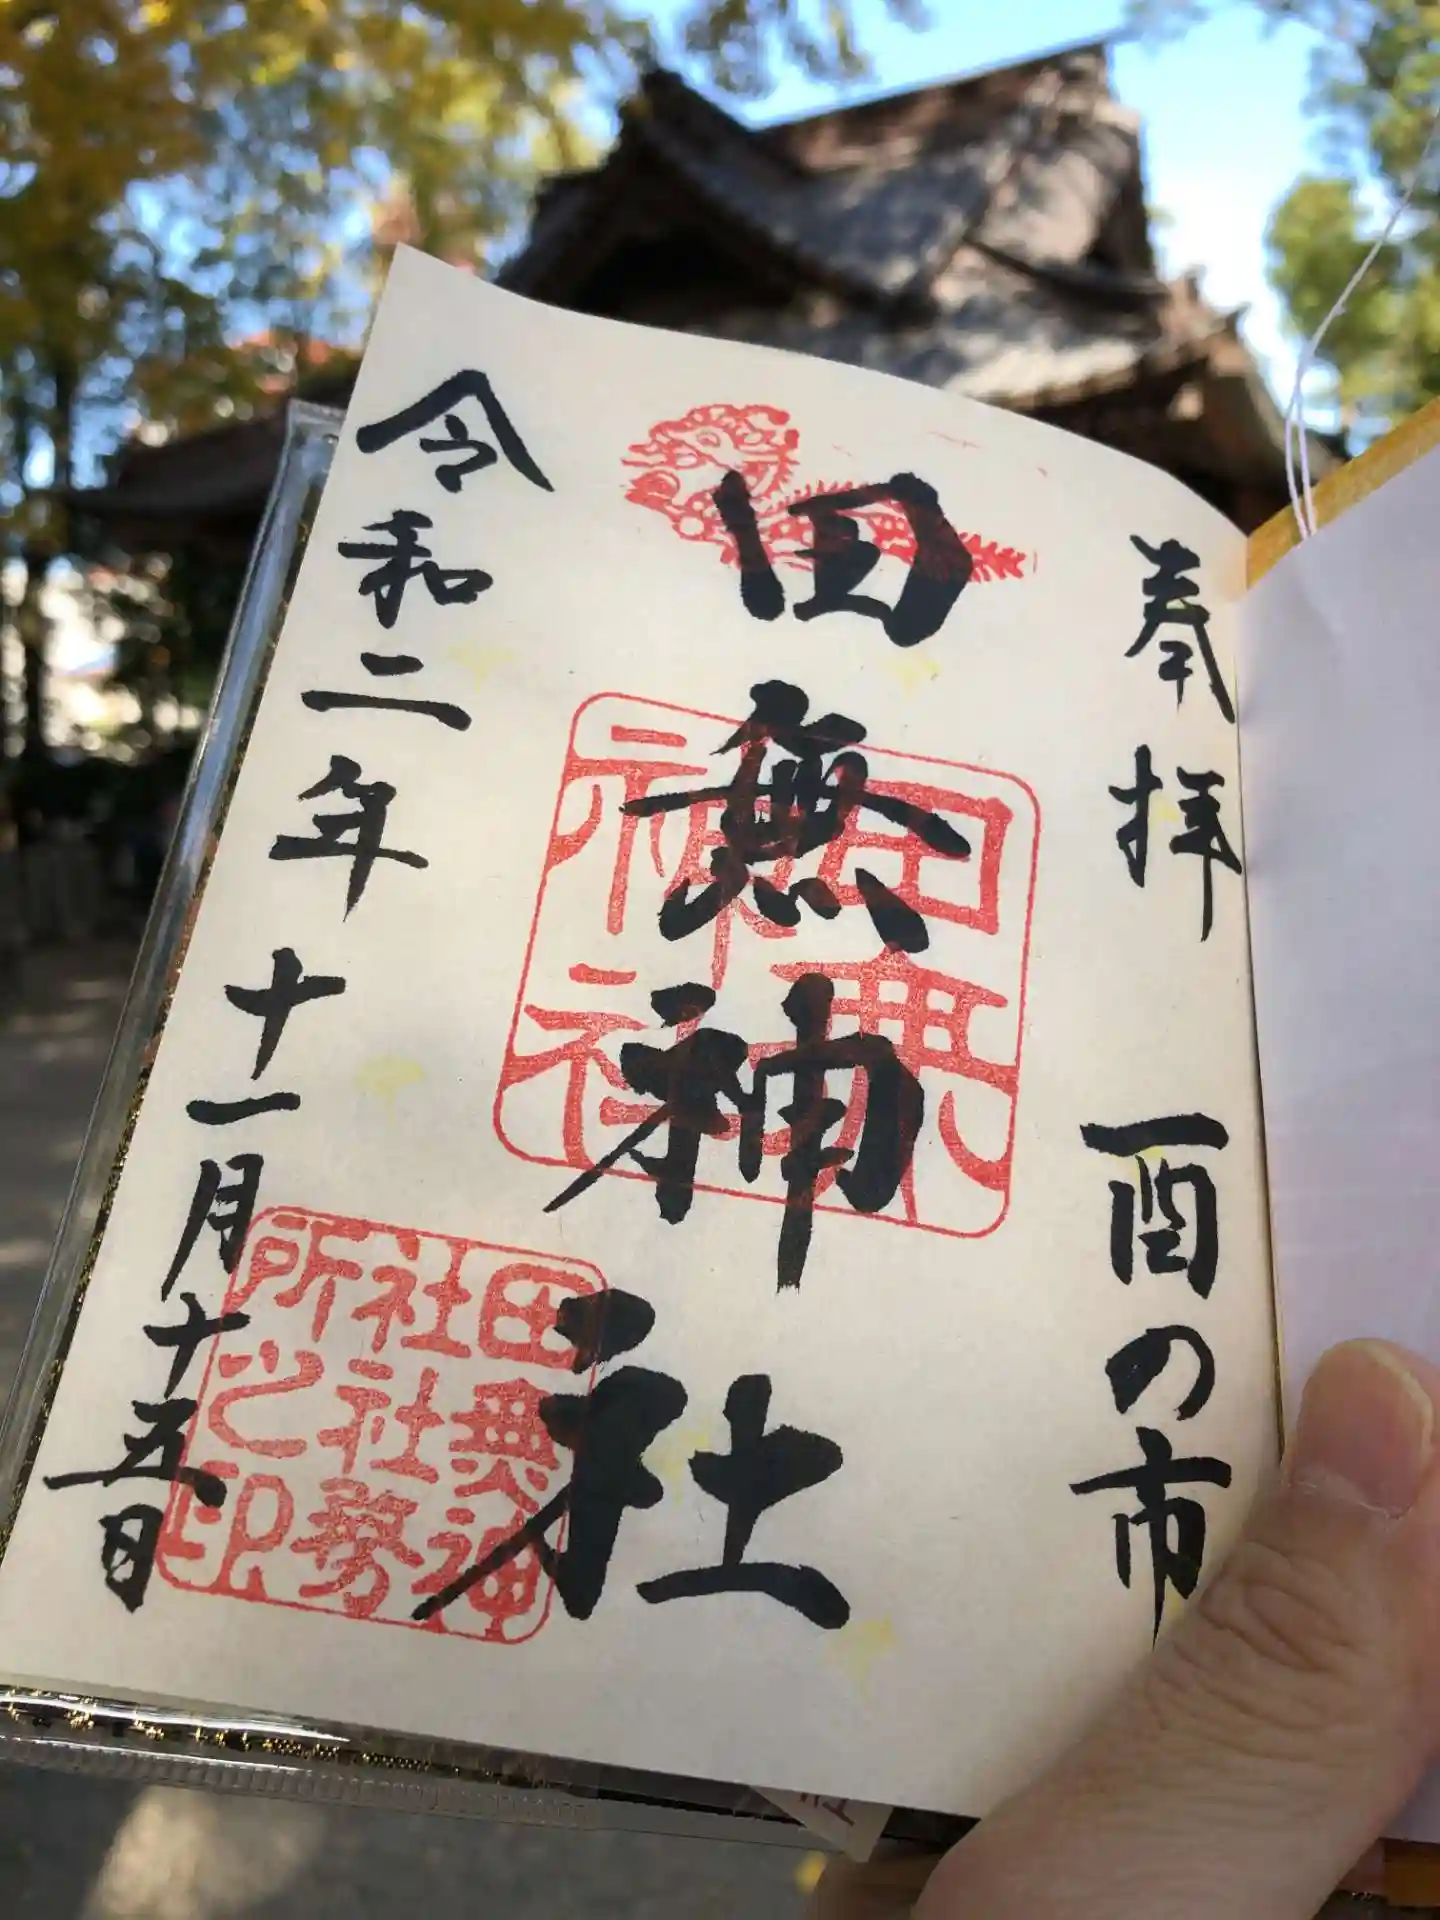 奉拝 酉の市
田無神社
田無神社
田無神社社務所之印
令和二年十一月十五日